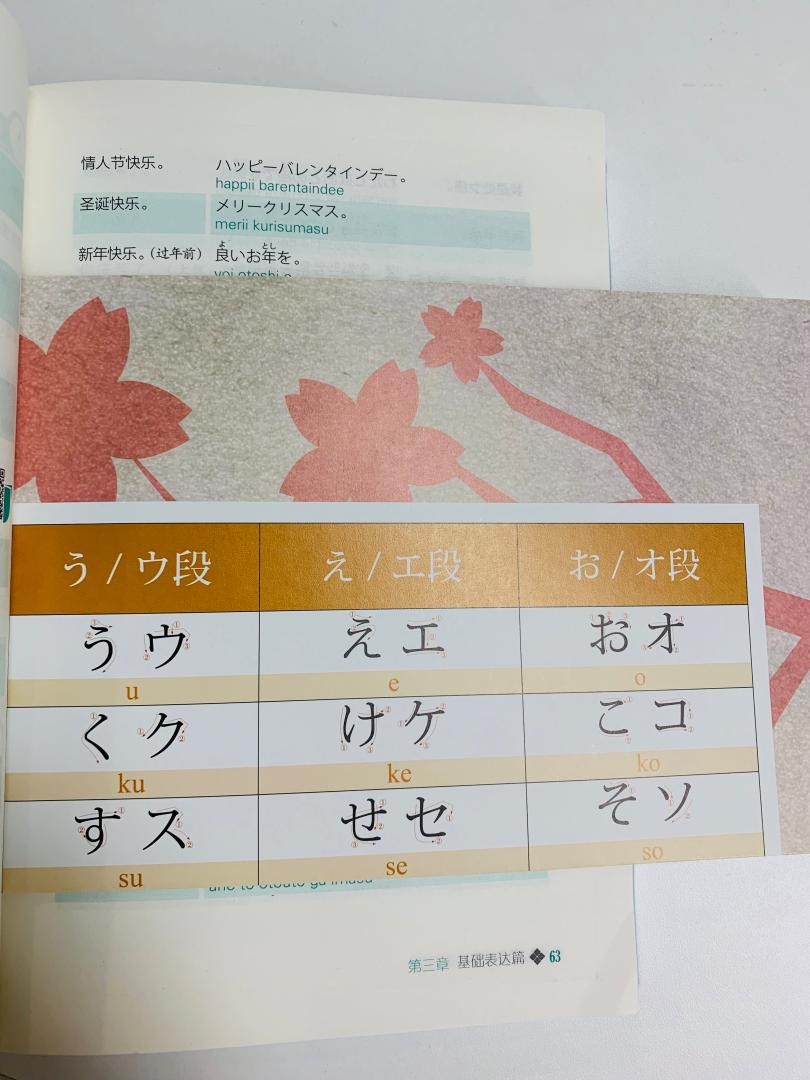 情人节快乐。 ハッピーバレンタインデー。
happii barentaindee
圣诞快乐。 メリークリスマス。
merii kurisumasu
新年快乐。(过年前) 良いお年を。
よ とし
yoi otoshi o
う / ウ段 え / エ段 お / オ段
う ウ え エ お オ
u e o
く ク け ケ こ コ
ku ke ko
す ス せ セ そ ソ
su se so
ane to otouto ga imasu
第三章 基础表达篇 ❖ 63